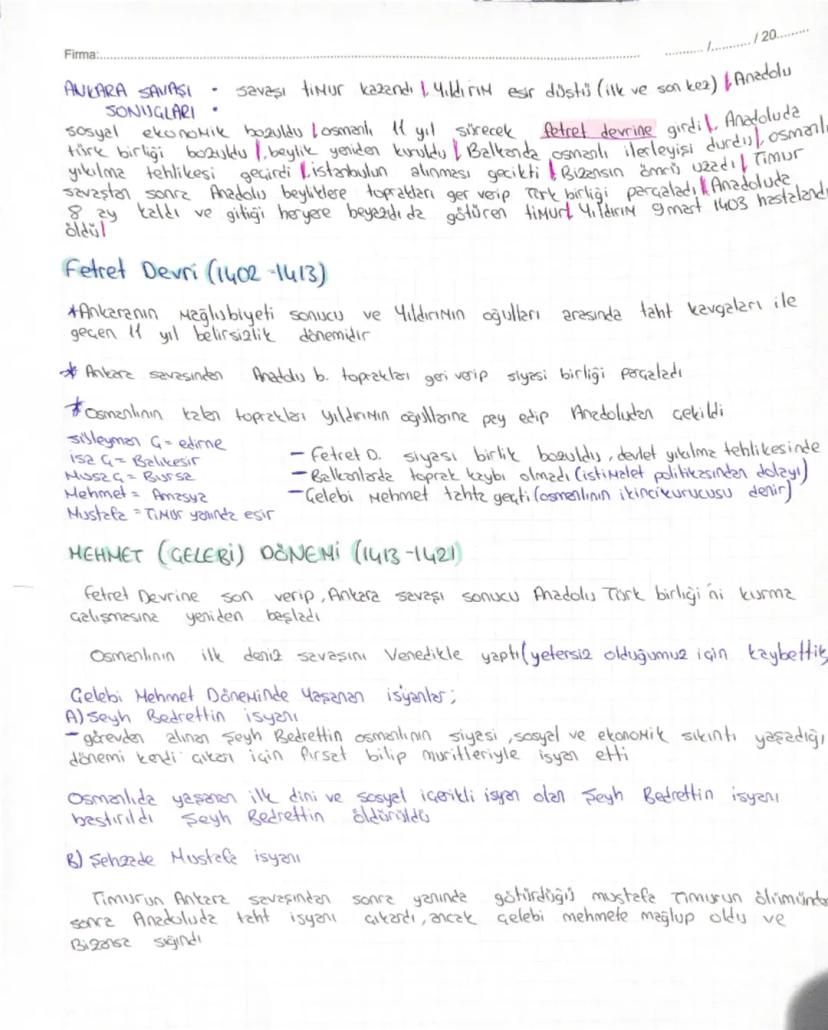 Firma:
/ / 20
ANKARA SAVAŞI • savaşı TİMUR kazandı | Yıldırım esir düştü (ilk ve son kez) | Anadolu
SONUÇLARI •
sosyal ekonomik bozuldu | osmanlı 11 yıl sürecek fetret devrine girdi |. Anadoluda
türk birliği bozuldu |, beylik yeniden kuruldu | Balkanda osmanlı ilerleyişi durdu |, osmanlı
yıkılma tehlikesi geçirdi | istanbulun alınması gecikti | Bizansın ömrü uzadı | Timur
savaştan sonra Anadolu beyliklere toprakları ger verip Türk birliği parçaladı | Anadoluda
8 ay kaldı ve gitiği heryere beyazıdı da götüren timur | Yıldırım 9 mart 1403 hastalandı
öldü |
Fetret Devri (1402-1413)
*Ankaranın mağlubiyeti sonucu ve Yıldırımın oğulları arasında taht kavgaları ile
geçen 11 yıl belirsizlik dönemidir
* Ankara savaşından Anadolu b. toprakları geri verip siyasi birliği parçaladı
* Osmanlının kalan toprakları yıldırımın oğullarına pay edip Anadoludan çekildi
Süleyman Ç = edirne
isa Ç = Balıkesir
Musa Ç = Bursa
Mehmet = Amasya
Mustafa = Timur yanında esir
- Fetret D. siyasi birlik bozuldu, devlet yıkılma tehlikesinde
- Balkanlarda toprak kaybı olmadı (istimalet politikasından dolayı)
- Çelebi Mehmet tahta geçti (osmanlının ikinci kurucusu denir)
MEHMET (ÇELEBİ) DÖNEMİ (1413-1421)
Fetret Devrine son verip, Ankara savaşı sonucu Anadolu Türk birliği'ni kurma
çalışmasına yeniden başladı
Osmanlının ilk deniz savaşını Venedikle yaptı (yetersiz olduğumuz için kaybettik
Çelebi Mehmet Döneminde Yaşanan isyanlar;
A) Şeyh Bedrettin isyanı
- görevden alınan Şeyh Bedrettin osmanlının siyasi, sosyal ve ekonomik sıkıntı yaşadığı
dönemi kendi çıkarı için fırsat bilip muritleriyle isyan etti
Osmanlıda yaşanan ilk dini ve sosyal içerikli isyan olan Şeyh Bedrettin isyanı
bastırıldı Şeyh Bedrettin öldürüldü
B) Şehzade Mustafa isyanı
Timurun Ankara savaşından sonra yanında götürdüğü mustafa Timurun ölümünde
sonra Anadoluda taht isyanı çıkardı, ancak çelebi mehmete mağlup oldu ve
Bizansa sığındı